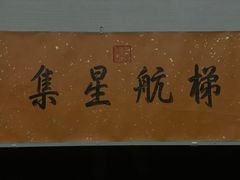 梯航星集